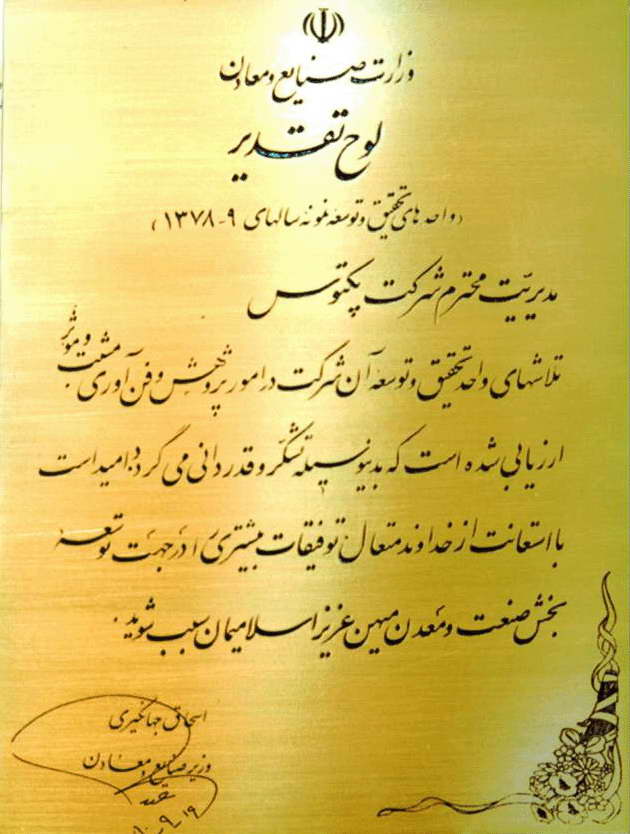 وزارت صنایع و معادن
لوح تقدیر
(واحدهای تحقیق و توسعه نمونه سالهای ۹-۱۳۷۸)
مدیریت محترم شرکت پکتوس
تلاشهای واحد تحقیق و توسعه آن شرکت در امور پژوهش و فن آوری مثبت و موثر
ارزیابی شده است که بدینوسیله تشکر و قدردانی می گردد، امید است
با استعانت از خداوند متعال توفیقات بیشتری را در جهت توسعه
بخش صنعت و معدن میهن عزیز اسلامیمان سبب شوید.
اسحاق جهانگیری
وزیر صنایع و معادن